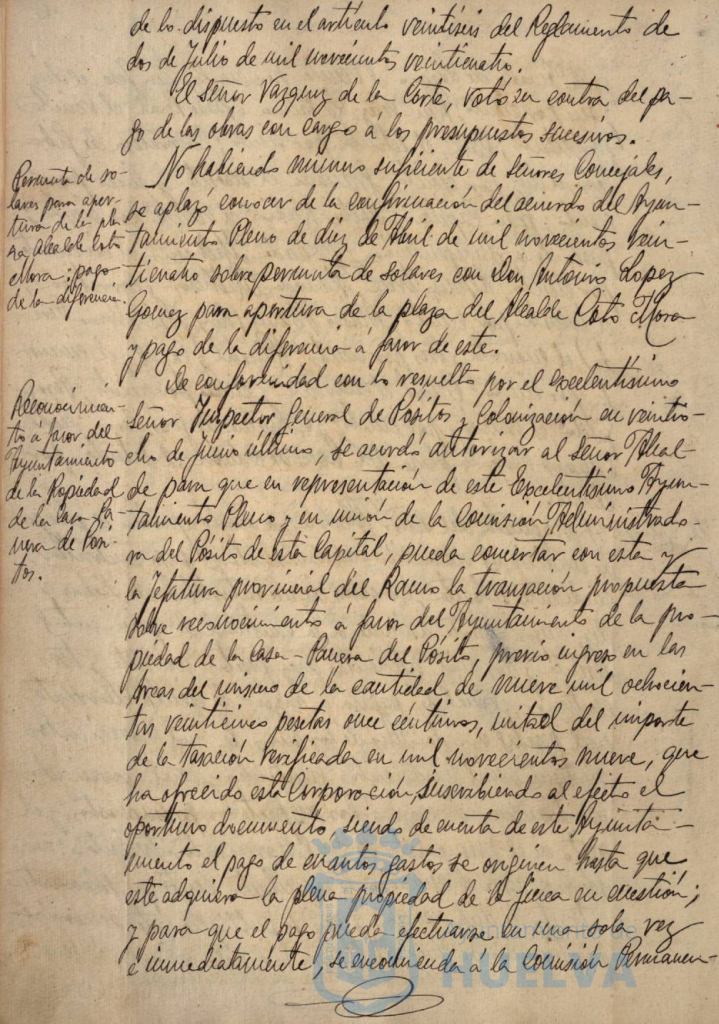 de lo dispuesto en el artículo veintiséis del Reglamento de
dos de Julio de mil novecientos veinticuatro.
El señor Vazquez de la Corte, votó en contra del pa-
go de las obras con cargo á los presupuestos sucesivos.
Permuta de so-
lares para aper-
tura de la pla-
za Alcalde Coto
Mora; pago
de la diferencia.
No habiendo numero suficiente de señores Concejales,
se aplazó conocer de la confirmación del acuerdo del Ayun-
tamiento Pleno de diez de Abril de mil novecientos vein-
ticuatro sobre permuta de solares con Don Antonio Lopez
Gomez para apertura de la plaza del Alcalde Coto Mora
y pago de la diferencia á favor de este.
Reconocimien-
to á favor del
Ayuntamiento
de la Propiedad
de la casa Pa-
nera de Pósi-
tos.
De conformidad con lo resuelto por el excelentísimo
señor Inspector General de Pósitos y Colonización en veintio-
cho de Junio último, se acordó autorizar al señor Alcal-
de para que en representación de este Excelentísimo Ayun-
tamiento Pleno y en unión de la Comisión Administrado-
ra del Pósito de esta Capital, pueda concertar con esta y
la Jefatura provincial del Ramo la transación propuesta
sobre reconocimiento á favor del Ayuntamiento de la pro-
piedad de la Casa-Panera del Pósito, previo ingreso en las
Arcas del mismo de la cantidad de nueve mil ochocien-
tas veinticinco pesetas once céntimos, mitad del importe
de la tasación verificada en mil novecientos nueve, que
ha ofrecido esta Corporación, suscribiendo al efecto el
oportuno documento, siendo de cuenta de este Ayunta-
miento el pago de cuantos gastos se originen hasta que
este adquiera la plena propiedad de la finca en cuestión;
y para que el pago pueda efectuarse en una sola vez
é inmediatamente, se encomienda á la Comisión Permanen-
HUELVA